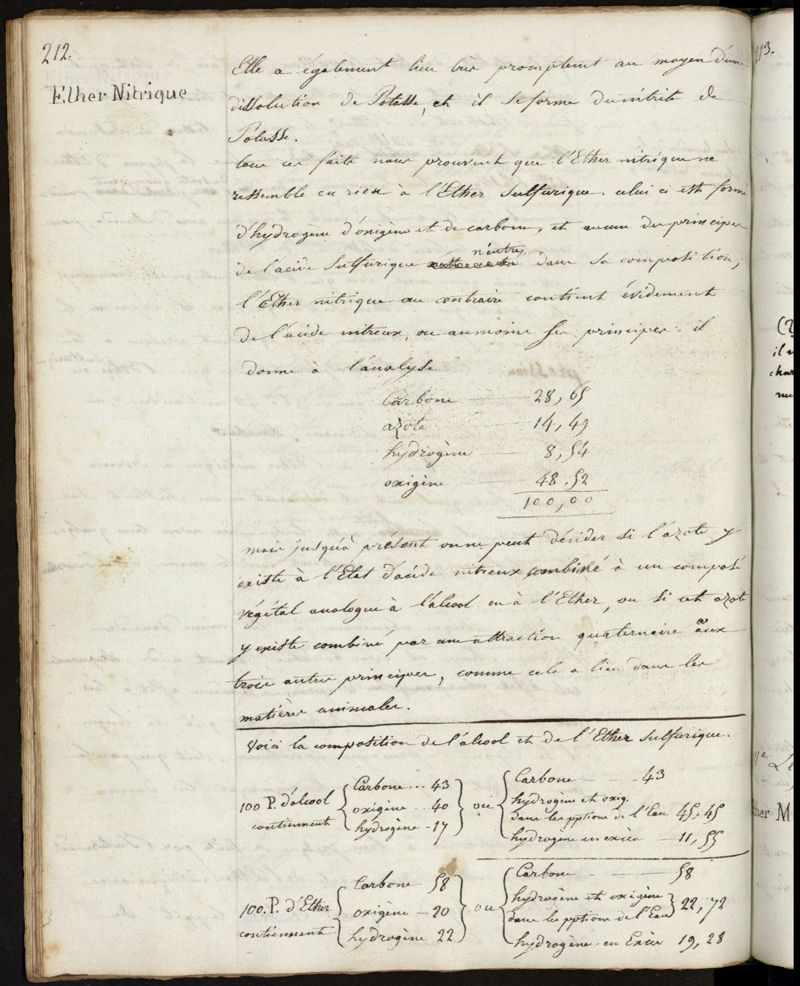 212.
Ether Nitrique
Elle a également lieu tres promptemt au moyen d'une
dissolution de Potasse, et il se forme du nitrite de
Potasse.
tous ces faits nous prouvent que l'Ether nitrique ne
ressemble en rien à l'Ether Sulfurique. celui ci est formé
d'hydrogene d'oxigène et de carbone, et aucun des principes
n'éntre
de l'acide Sulfurique dans sa composition;
l'Ether nitrique au contraire contient évidement
de l'acide nitreux, ou aumoins ses principes. il
donne à l'analyse
Carbone 28,65
azote 14,49
hydrogène 8,54
oxigène 48.52
100,00
mais jusqu'à présent on ne peut décider si l'azote y
existe à l'Etat d'acide nitreux combiné à un composé
végétal analogue à l'alcool ou à l'Ether, ou si cet azote
y existe combiné par une attraction quaternaire aux
trois autres principes, comme cela a lieu dans les
matières animales.
Voici la composition de l'alcool et de l'Ether Sulfurique.
100 P. d'alcool contiennent { Carbone ... 43 oxigène .. 40 hydrogène - 17 } ou { Carbone - - - 43
hydrogène et oxig. dans les pptions de l'Eau 45,45
hydrogène en excès - 11,55
100. P. d'Ether contiennent { Carbone 58 oxigène - 20 hydrogène 22 } ou { Carbone - - - - 58
hydrogène et oxigène dans les pptions de l'Eau } 22,72
hydrogène en Excès 19,28
213.